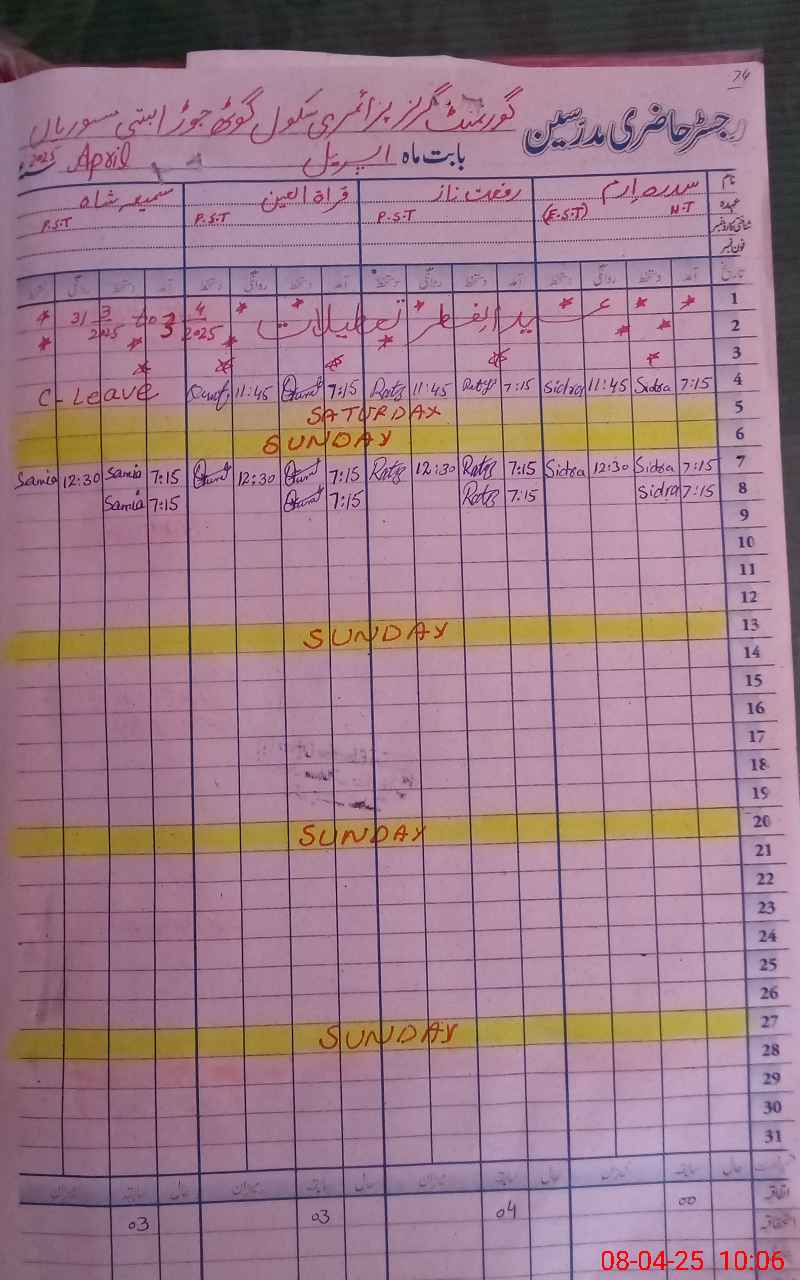 74
رجسٹر حاضری مدرسین گورنمنٹ گرلز پرائمری سکول گوٹھ جوڑا بستی سوریاں
بابت ماہ اپریل April 2025
نام سدرہ ارم رفعت ناز قراۃ العین سمیعہ شاہ
عہدہ N.T (E.S.T) P.S.T P.S.T P.S.T
شناختی کارڈ نمبر
فون نمبر
تاریخ آمد دستخط روانگی دستخط آمد دستخط روانگی دستخط آمد دستخط روانگی دستخط آمد دستخط روانگی
1
عید الفطر تعطیلات 31 3/2025 to 3 4/2025
2
3
C-Leave 11:45 7:15 11:45 7:15 Sidra 11:45 Sidra 7:15 4
SATURDAY 5
SUNDAY 6
Samia 12:30 Samia 7:15 12:30 7:15 12:30 7:15 Sidra 12:30 Sidra 7:15 7
Samia 7:15 7:15 7:15 Sidra 7:15 8
9
10
11
12
SUNDAY 13
14
15
16
17
18
19
SUNDAY 20
21
22
23
24
25
26
SUNDAY 27
28
29
30
31
حال سابقہ میزان حال سابقہ میزان حال سابقہ میزان حال سابقہ میزان
اتفاقیہ 00 04 03 03
08-04-25 10:06